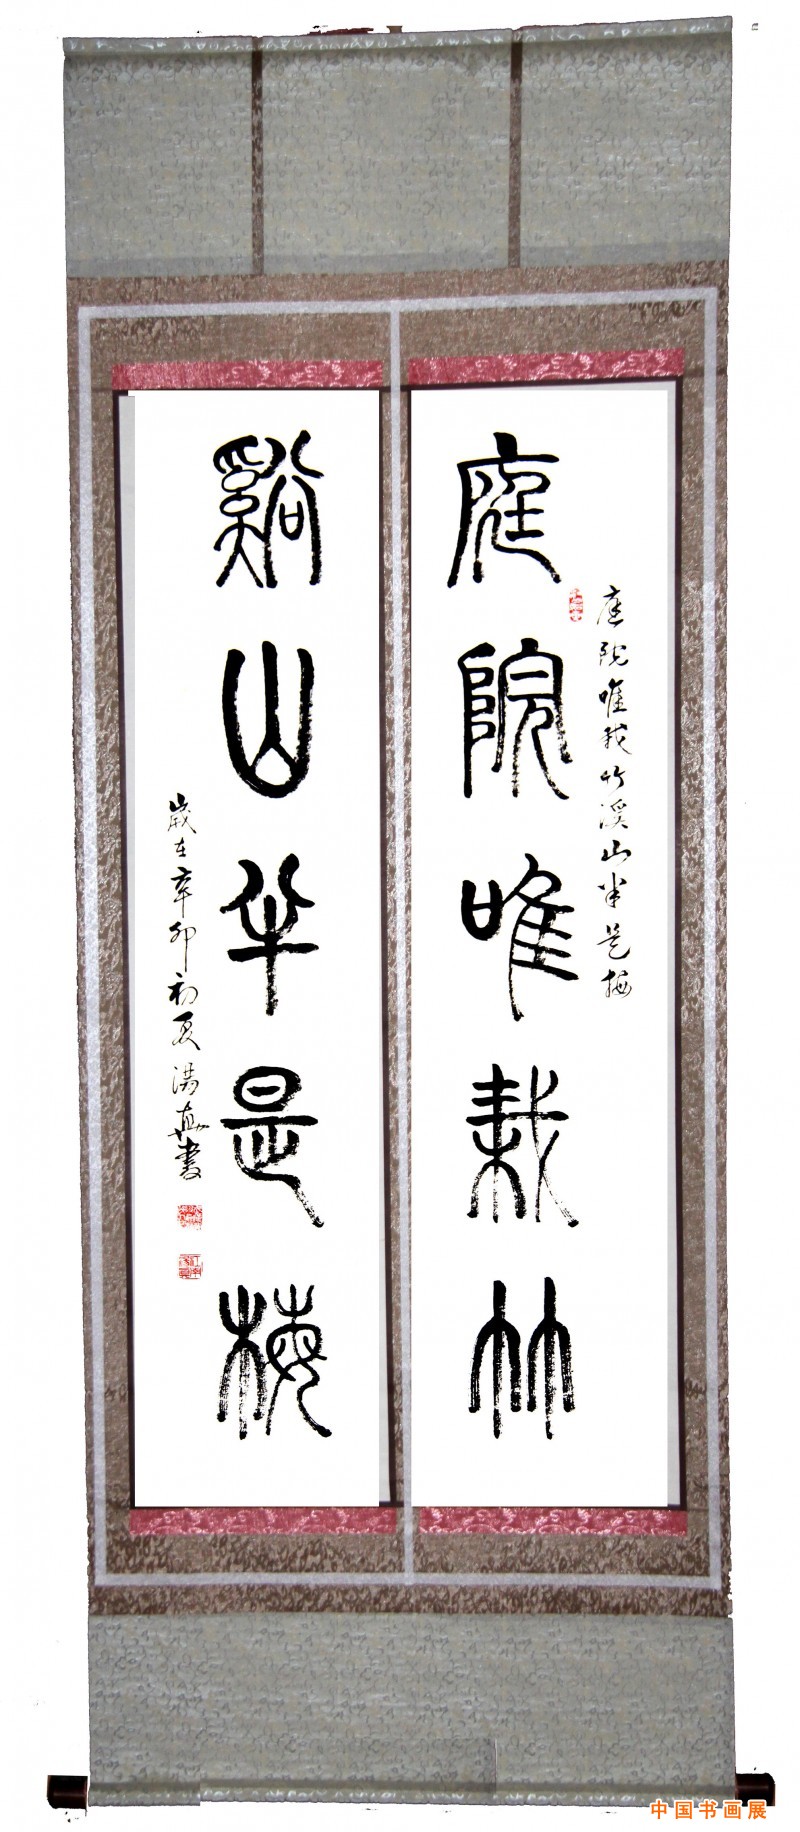 庭院唯栽竹
庭院唯栽竹溪山半是梅
谿山半是梅
歲在辛卯初夏湯真書
中国书画展